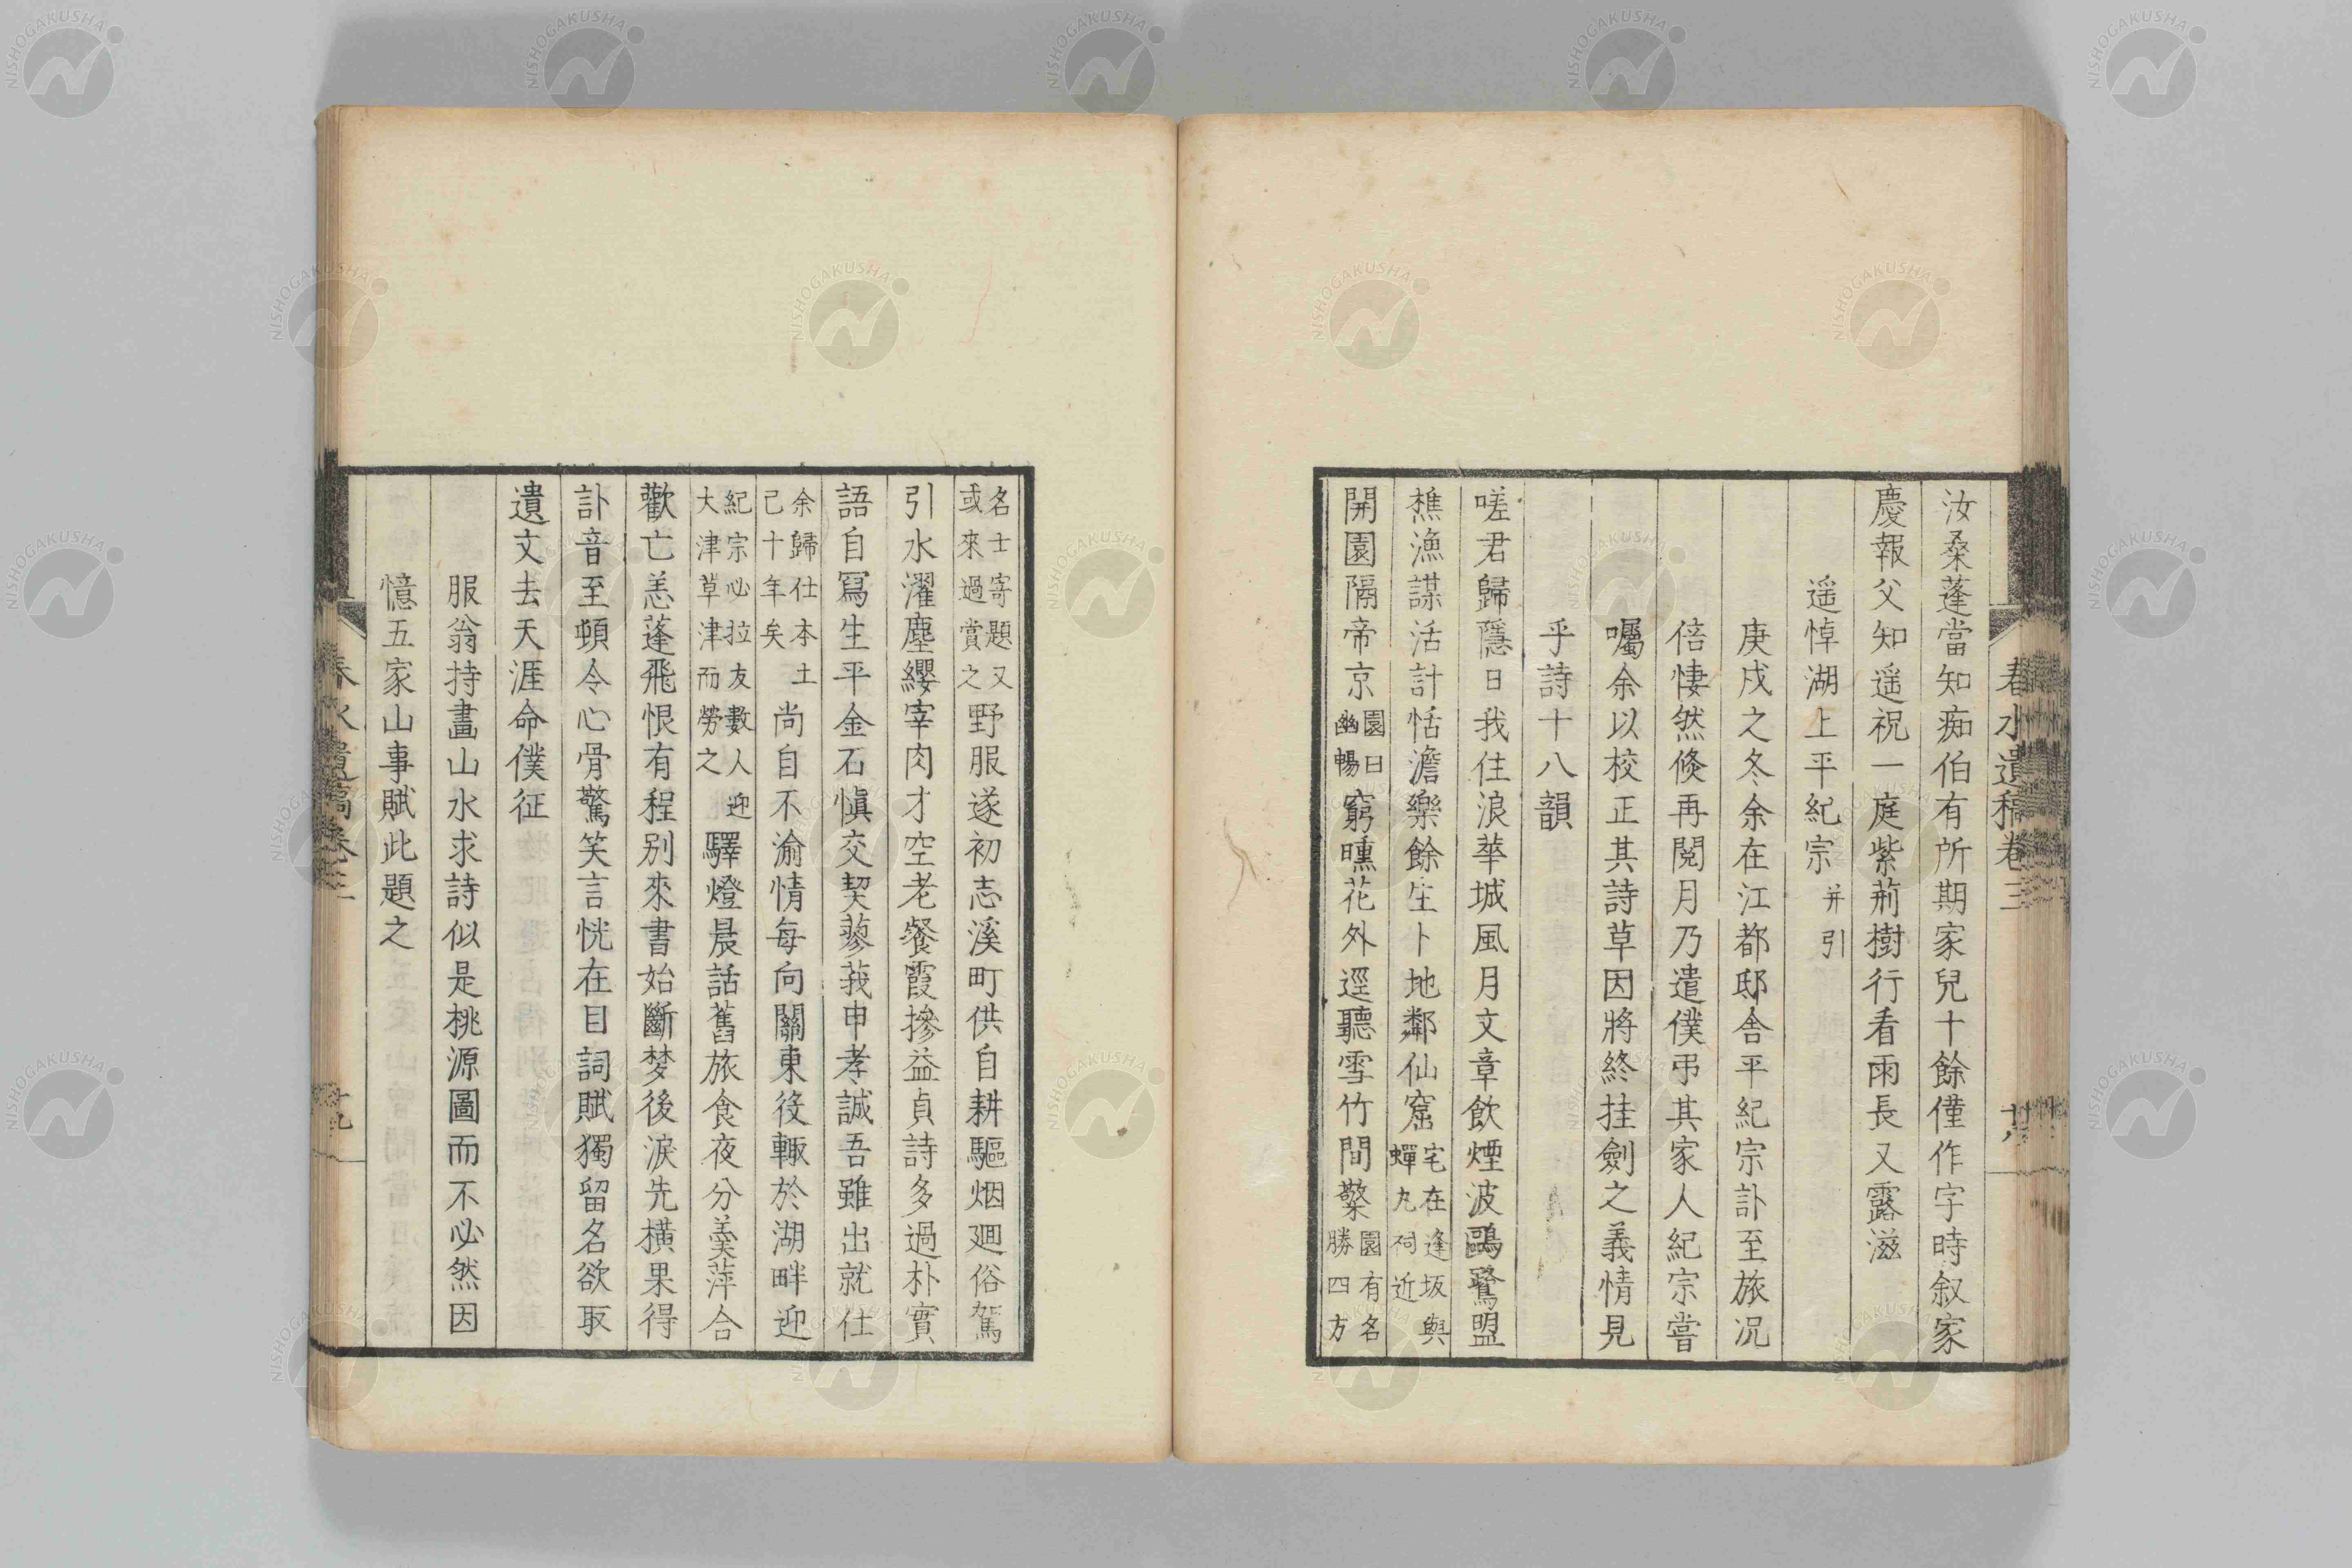 春水遺稿卷三
十八
汝桑蓬當知痴伯有所期家兒十餘僅作字時叙家
慶報父知遥祝一庭紫荊樹行看雨長又露滋
遥悼湖上平紀宗并引
庚戌之冬余在江都邸舍平紀宗訃至旅况
倍悽然倏再閱月乃遣僕弔其家人紀宗嘗
囑余以校正其詩草因將終挂劍之義情見
乎詩十八韻
嗟君歸隱日我住浪華城風月文章飲煙波鷗鷺盟
樵漁謀活計恬澹樂餘生卜地鄰仙窟宅在逢坂與蟬丸祠近
開園隔帝京園曰幽暢窮曛花外逕聽雪竹間檠園有名勝四方
名士寄題又或來過賞之野服遂初志溪町供自耕驅烟廻俗駕
引水濯塵纓宰肉才空老餐霞摻益貞詩多過朴實
語自冩生平金石愼交契蓼莪申孝誠吾雖出就仕
余歸仕本土已十年矣尚自不渝情每向關東役輙於湖畔迎
紀宗必拉友數人迎大津草津而勞之驛燈晨話舊旅食夜分羹萍合
歡亡恙蓬飛恨有程別來書始斷梦後淚先横果得
訃音至頓令心骨驚笑言恍在目詞賦獨留名欲取
遺文去天涯命僕征
服翁持畵山水求詩似是桃源圖而不必然因
憶五家山事賦此題之
春水遺稿卷三
十九
NISHOGAKUSHA